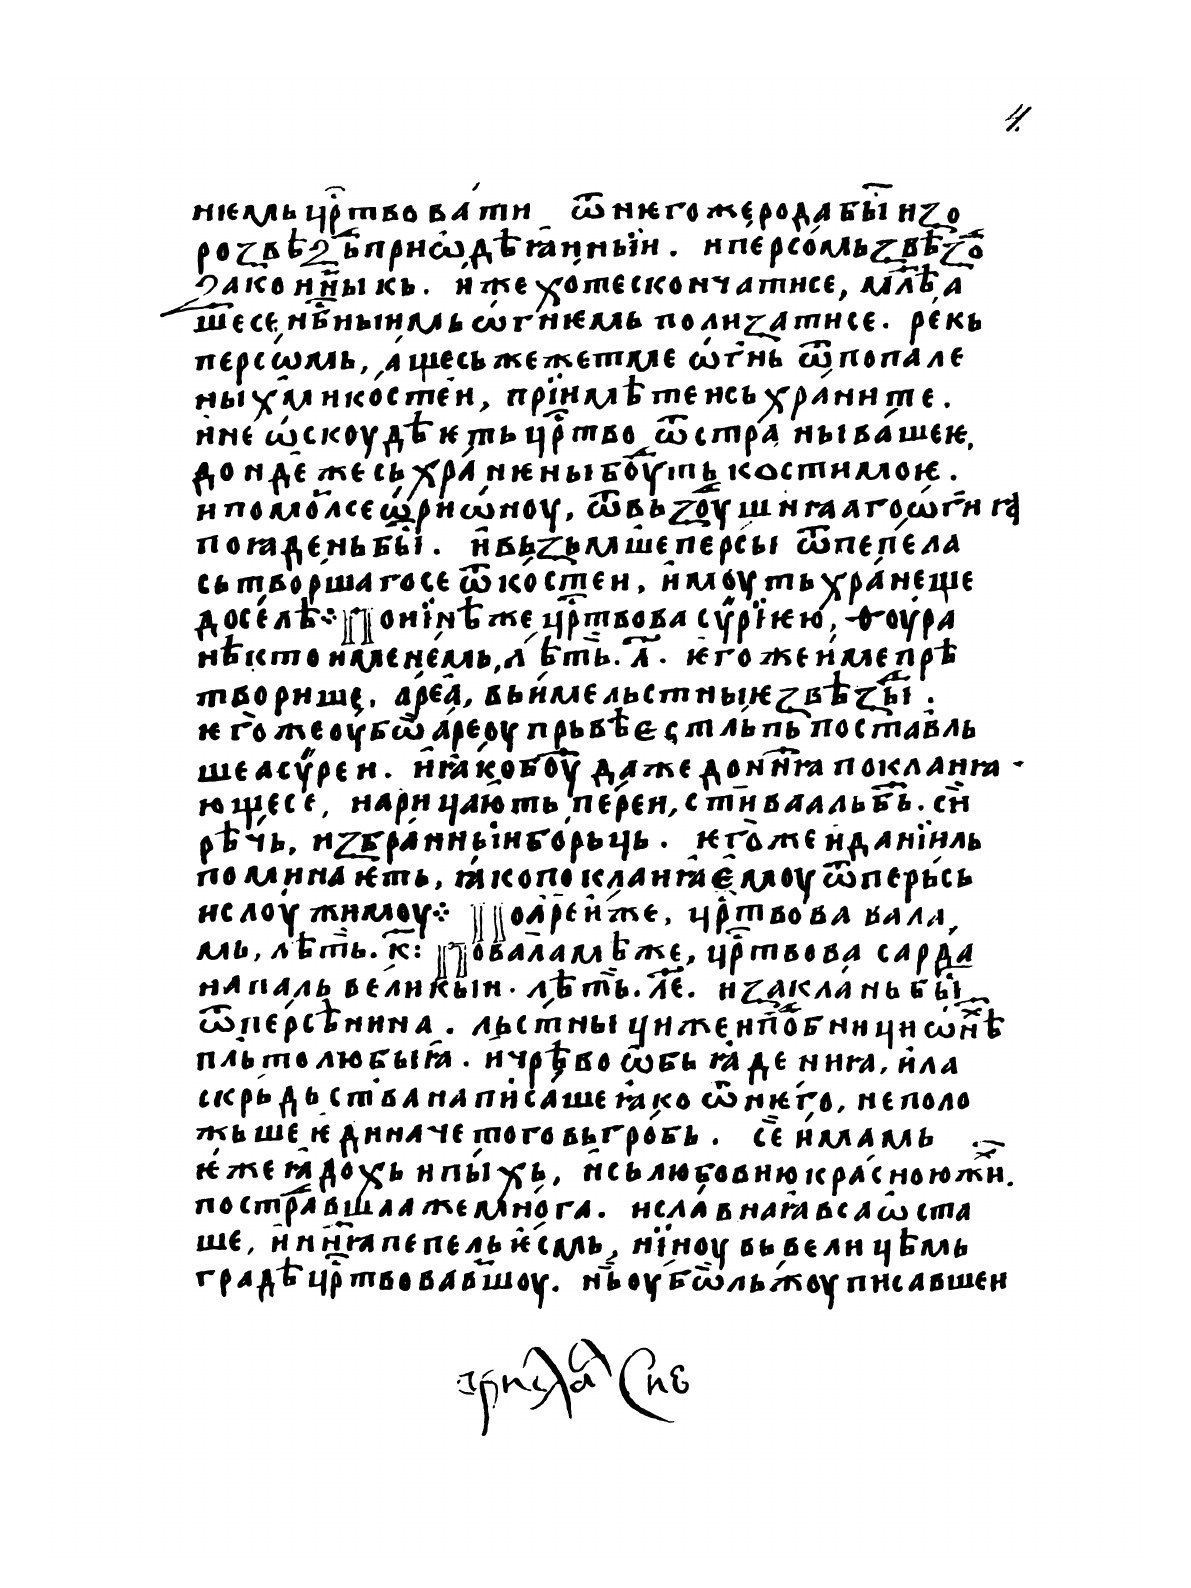 4.
нꙗемь цр҇твовати ѿ него же рода бы̑ и зо
розвѣздь приѡдѣганныи. и персомь звѣзо
законныкь. иже хоте скончатисе, млѣ а
ше се, нб҇ныимь ѡгнꙗемь полизатисе. рекь
персѡмь, аще сьжежет ме ѡгнь ѿ попале
ных ми костеи, прїимѣте и сьхраните.
и не ѡскоудѣѥть цр҇тво ѿ страны вашеѥ,
дондеже сьхранѥны боуть кости моѥ.
и помолсе ѡриѡноу, ѿ вьздоушнꙗаго ѡгнꙗ
поꙗдень бы̑. и вьзьмше персы ѿ пепела
сьтворшаго се ѿ костеи, имоуть хранеще
доселѣ⁘ По нїнѣ же, цр҇твова сѵрїѥю, ѳоура
нѣкто именемь, лѣть. л҃. ѥго же име прѣ
творише, ареа, вь име льстныѥ звѣзы.
ѥго же оубѡ ареоу прьвѣѥ стльпь поставль
ше асѵреи. и ꙗко боу даже до нн҇ꙗ покланꙗ-
ющесе, нарицають переи, стїи ваальбь. си
рѣчь, избранныи борьць. ѥго же и данїиль
поминаѥть, ꙗко покланꙗ ѥмоу ѿ перьсь
и слоужимоу⁘ По ареи же, цр҇твова вала
мь, лѣть. к҃: По валамѣ же, цр҇твова сарда
напаль великыи. лѣть. л҃е. и заклань бы̑
ѿ персѣнина. льстныци же и поⷣбници ѡнѣ
пльтолюбыꙗ. и чрѣво ѡбьꙗдениꙗ, и ла
скрьдьства написаше ꙗко ѿ него, не поло
жьше ѥдиначе того вь гробь. се имамь
ѥже ꙗдохь и пыхь, и сь любовию красною жи.
пострⷣавша а же многа. и славнаꙗ вса ѡста
ше, и нн҇ꙗ пепель ѥсмь, нїноу вь велицѣмь
градѣ цр҇твовавшоу. нь оубѡ льжоу писавшеи